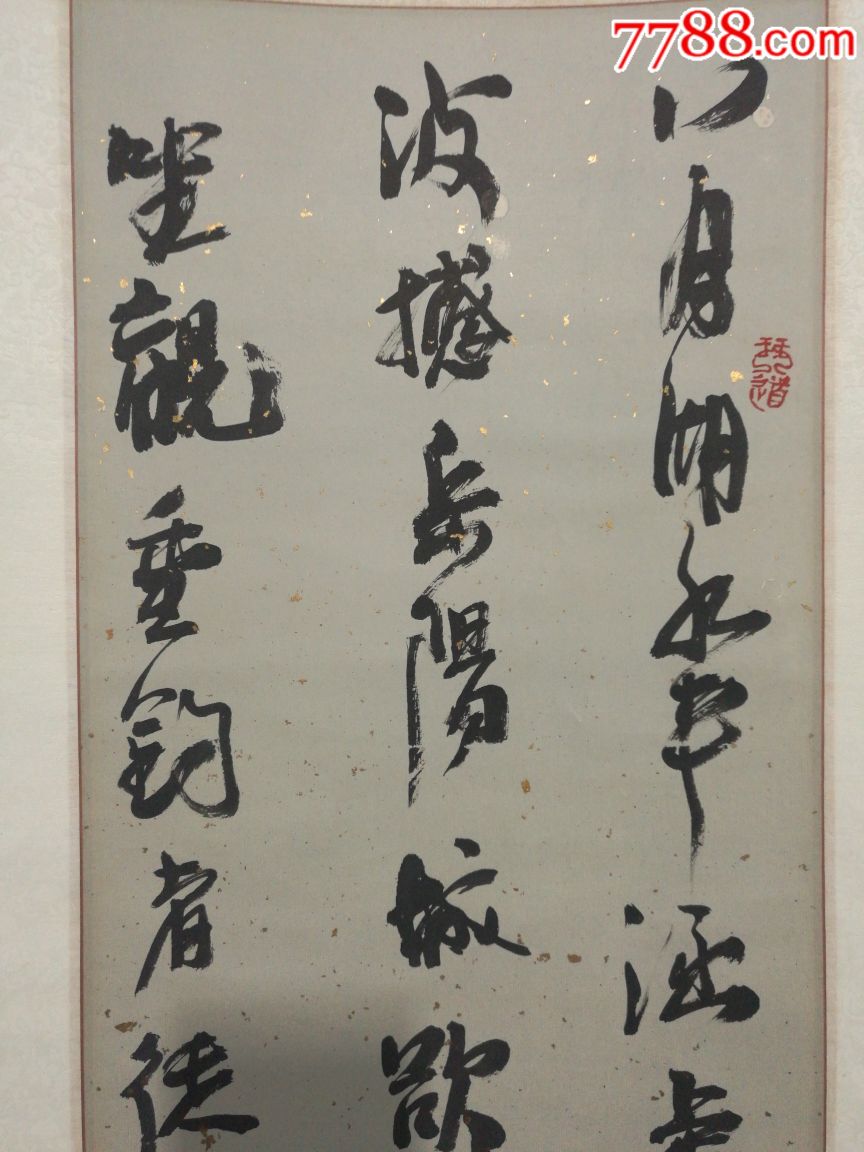 7788.com
八月湖水平涵虚
波撼岳陽城欲
坐觀垂釣者徒